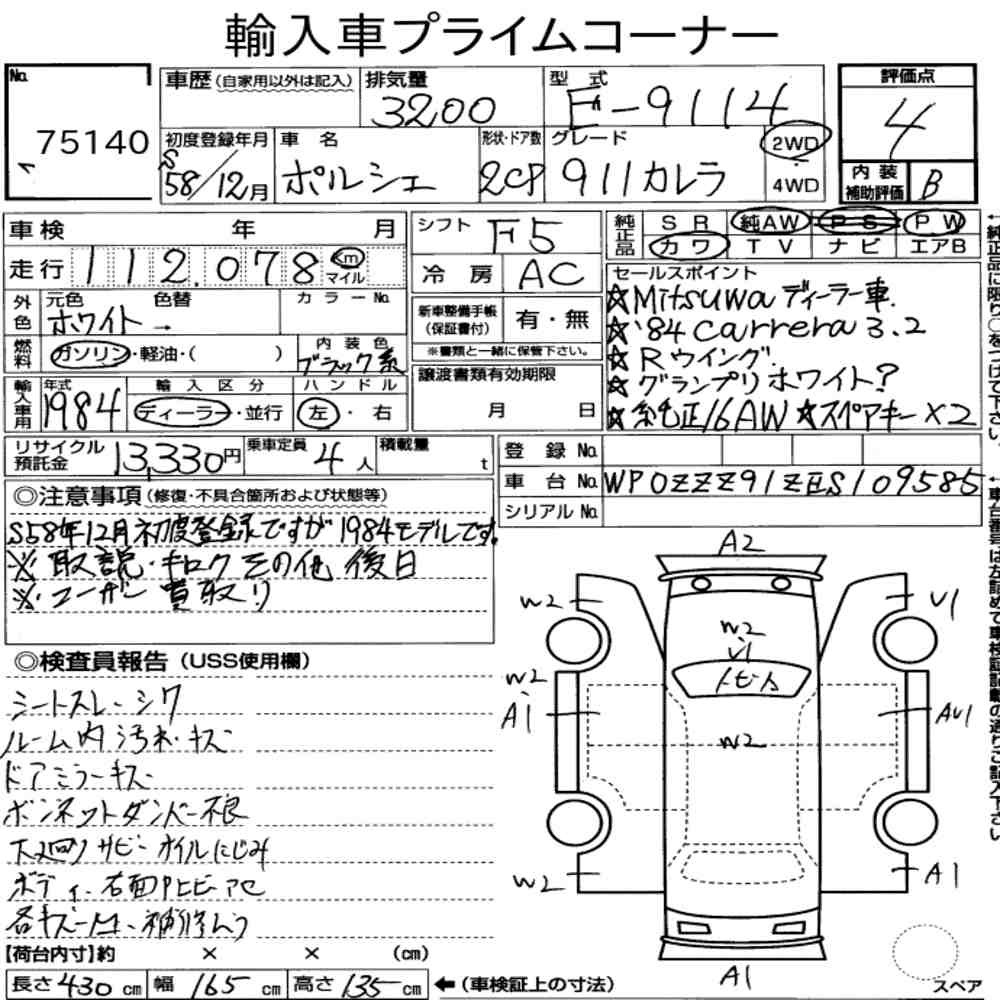 輸入車プライムコーナー
No. 75140
車歴 (自家用以外は記入) 排気量 3200 型式 E-911J4
評価点 4
初度登録年月 S58/12月 車名 ポルシェ 形状・ドア数 2CP グレード 911カレラ 2WD 4WD
内装補助評価 B
車検 年 月
走行 112,078 km マイル
シフト F5
冷房 AC
純正品 SR 純AW PS PW
カワ TV ナビ エアB
外色 元色 ホワイト 色替 → カラーNo.
燃料 ガソリン・軽油・( ) 内装色 ブラック系
新車整備手帳(保証書付) 有・無
※書類と一緒に保管下さい。
譲渡書類有効期限
月 日
輸入車用 年式 1984 輸入区分 ディーラー・並行 ハンドル 左・右
セールスポイント
☆Mitsuwaディーラー車.
☆'84 carrera 3.2
☆Rウイング
☆グランプリホワイト?
☆純正16AW ☆スペアキー×2
リサイクル預託金 13,330円 乗車定員 4人 積載量 t
登録No.
車台No. WP0ZZZ91ZES109585
シリアルNo.
◎注意事項 (修復・不具合箇所および状態等)
S58年12月初度登録ですが1984モデルです。
※ 取説・キロク その他 後日
※ ユーザー買取り
◎検査員報告 (USS使用欄)
シートスレ・シワ
ルーム内汚れ・キズ
ドアミラーキズ
ボンネットダンパー不良
下廻りサビ・オイルにじみ
ボディ
【荷台内寸】約 × × (cm)
長さ 430 cm 幅 165 cm 高さ 135 cm ←(車検証上の寸法)
A2
W2
V1
W2
V1
トビ石
W2
A1
W2
AV1
W2
A1
A1
スペア
←純正品に限り○をつけて下さい。
←車台番号は左詰めで車検証記載の通りご記入下さい。